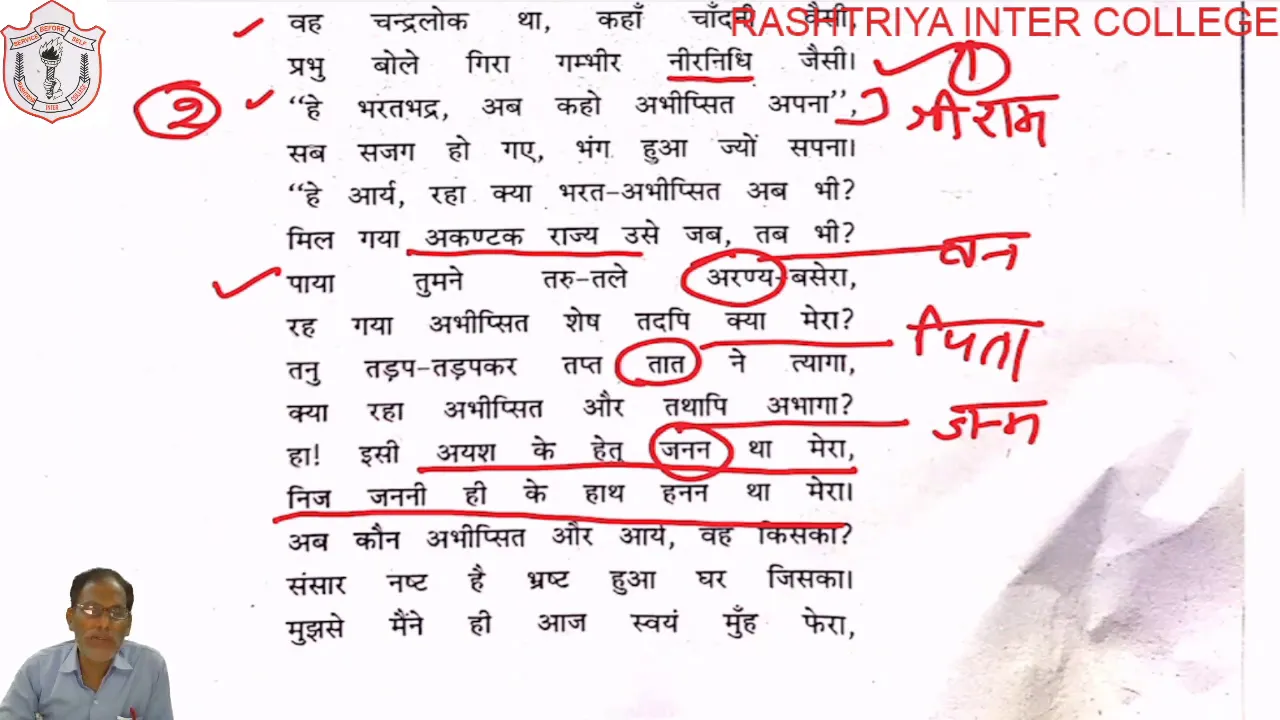 RASHTRIYA INTER COLLEGE
SERVICE BEFORE SELF
INTER
वह चन्द्रलोक था, कहाँ चाँदनी वैसी,
प्रभु बोले गिरा गम्भीर नीरनिधि जैसी।
१
२
"हे भरतभद्र, अब कहो अभीप्सित अपना",
श्री राम
सब सजग हो गए, भंग हुआ ज्यों सपना।
"हे आर्य, रहा क्या भरत-अभीप्सित अब भी?
मिल गया अकण्टक राज्य उसे जब, तब भी?
वन
पाया तुमने तरु-तले अरण्य-बसेरा,
रह गया अभीप्सित शेष तदपि क्या मेरा?
पिता
तनु तड़प-तड़पकर तप्त तात ने त्यागा,
क्या रहा अभीप्सित और तथापि अभागा?
जन्म
हा! इसी अयश के हेतु जनन था मेरा,
निज जननी ही के हाथ हनन था मेरा।
अब कौन अभीप्सित और आर्य, वह किसका?
संसार नष्ट है भ्रष्ट हुआ घर जिसका।
मुझसे मैंने ही आज स्वयं मुँह फेरा,